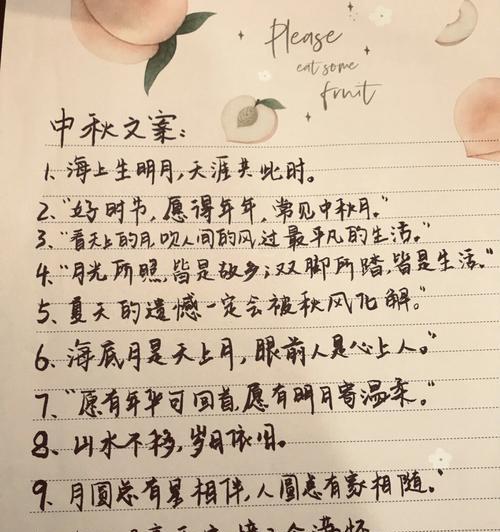 Please
eat some
fruit
中秋文案：
1、海上生明月，天涯共此时。
2、“好时节，愿得年年，常见中秋月。”
3、“看天上的月，吹人间的风，过最平凡的生活。”
4、“月光所照，皆是故乡；双脚所踏，皆是生活。”
5、夏天的遗憾一定会被秋风化解。”
6、海底月是天上月，眼前人是心上人。”
7、“愿有年华可回首，愿有明月寄温柔。”
8、山水不移，岁月依旧。
9、月圆总有星相伴，人圆总有家相随。”